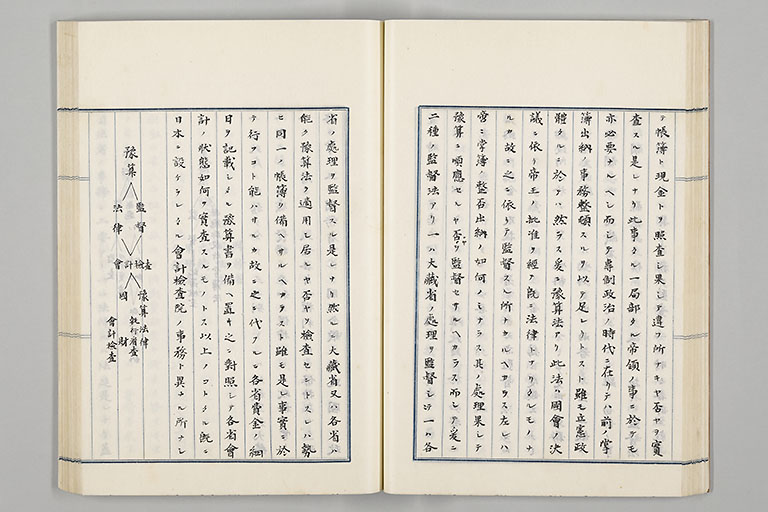 テ帳簿ト現金トヲ照査シ果シテ違フ所ナキヤ否ヤヲ實
査スル是レナリ此事タル一局部タル帝領ノ事ニ於テモ
亦必要ナルヘシ而シテ專制政治ノ時代ニ在リテハ前ノ掌
簿出納ノ事務整頓スルヲ以テ足レリトスト雖モ立憲政
體タルニ於テハ然ラス爰ニ豫算法アリ此法ハ國會ノ決
議ニ依リ帝王ノ批准ヲ經テ既ニ法律トナリタルモノナ
ルカ故ニ之ニ依リテ監督スル所ナクルヘカラス左レハ
啻ニ掌簿ノ整否出納ノ如何ノミナラス其ノ處理果シテ
豫算ニ順應セルヤ否ヤヲ監督セサルヘカラス而シテ爰ニ
二種ノ監督法アリ一ハ大藏省ノ處理ヲ監督シテ一ハ各
省ノ處理ヲ監督スル是レナリ然レト大藏省又ハ各省ハ
能ク豫算法ヲ適用シ居ルヤ否ヤヲ檢査セントスレハ勢
ヒ同一ノ帳簿ヲ備ヘサルヘカラスト雖モ是レ事實ニ於
テ行フコト能ハサルカ故ニ之ニ代フルニ各省費金ノ細
目ヲ記載シタル豫算書ヲ備ヘ置キ之ニ對照シテ各省會
計ノ狀態如何ヲ實査スルモノトス以上ノコトタル既ニ
日本ニ設ケラレタル會計檢査院ノ事務ト異ナル所ナシ
豫算
監督
法律
會計檢査
豫算法律
執行審査
國財
會計檢査